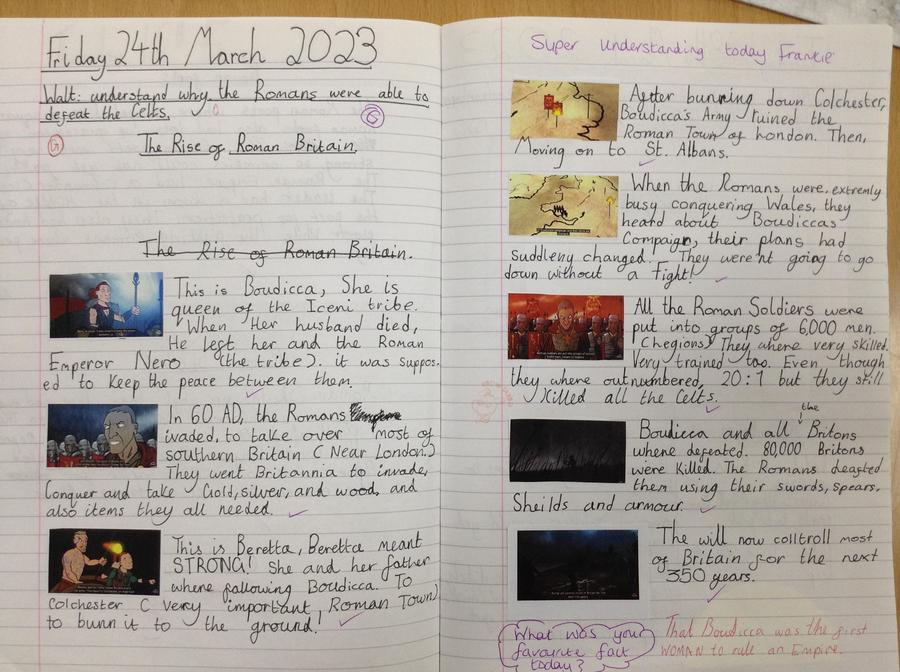 Friday 24th March 2023
Walt: understand why the Romans were able to
defeat the Celts.
G
G
The Rise of Roman Britain.
The Rise of Roman Britain.
This is Boudicca, She is
queen of the Iceni tribe.
When Her husband died,
He left her and the Roman
Emperor Nero (the tribe). it was suppos-
ed to Keep the peace between them.
In 60 AD, the Romans
ivaded, to take over most of
southern Britain (Near London.)
They went Britannia to invade,
Conquer and take Gold, silver, and wood, and
also items they all needed.
This is Beretta, Beretta meant
STRONG! She and her father
where following Boudicca. To
Colchester. (very important, Roman Town)
to bunn it to the ground!
Super understanding today Frankie
After bunning down Colchester,
Boudicca's Army ruined the
Roman Town of London. Then,
Moving on to St. Albans.
When the Romans were, extremly
busy conquering Wales, they
heard about Boudiccas
Campaign, their plans had
suddleny changed. They were'nt going to go
down without a Fight!
All the Roman Soldiers were
put into groups of 6,000 men.
(hegions) They where very skilled.
Very trained too. Even though
they where outnumbered, 20:1 but they still
Killed all the Celts.
the
Boudicca and all Britons
where defeated. 80,000 Britons
were Killed. The Romans deafted
them using their swords, spears,
Sheilds and armour.
The will now colltroll most
of Britain for the next
350 years.
What was your
favourite fact
today?
That Boudicca was the first
WOMAN to rule an Empire.